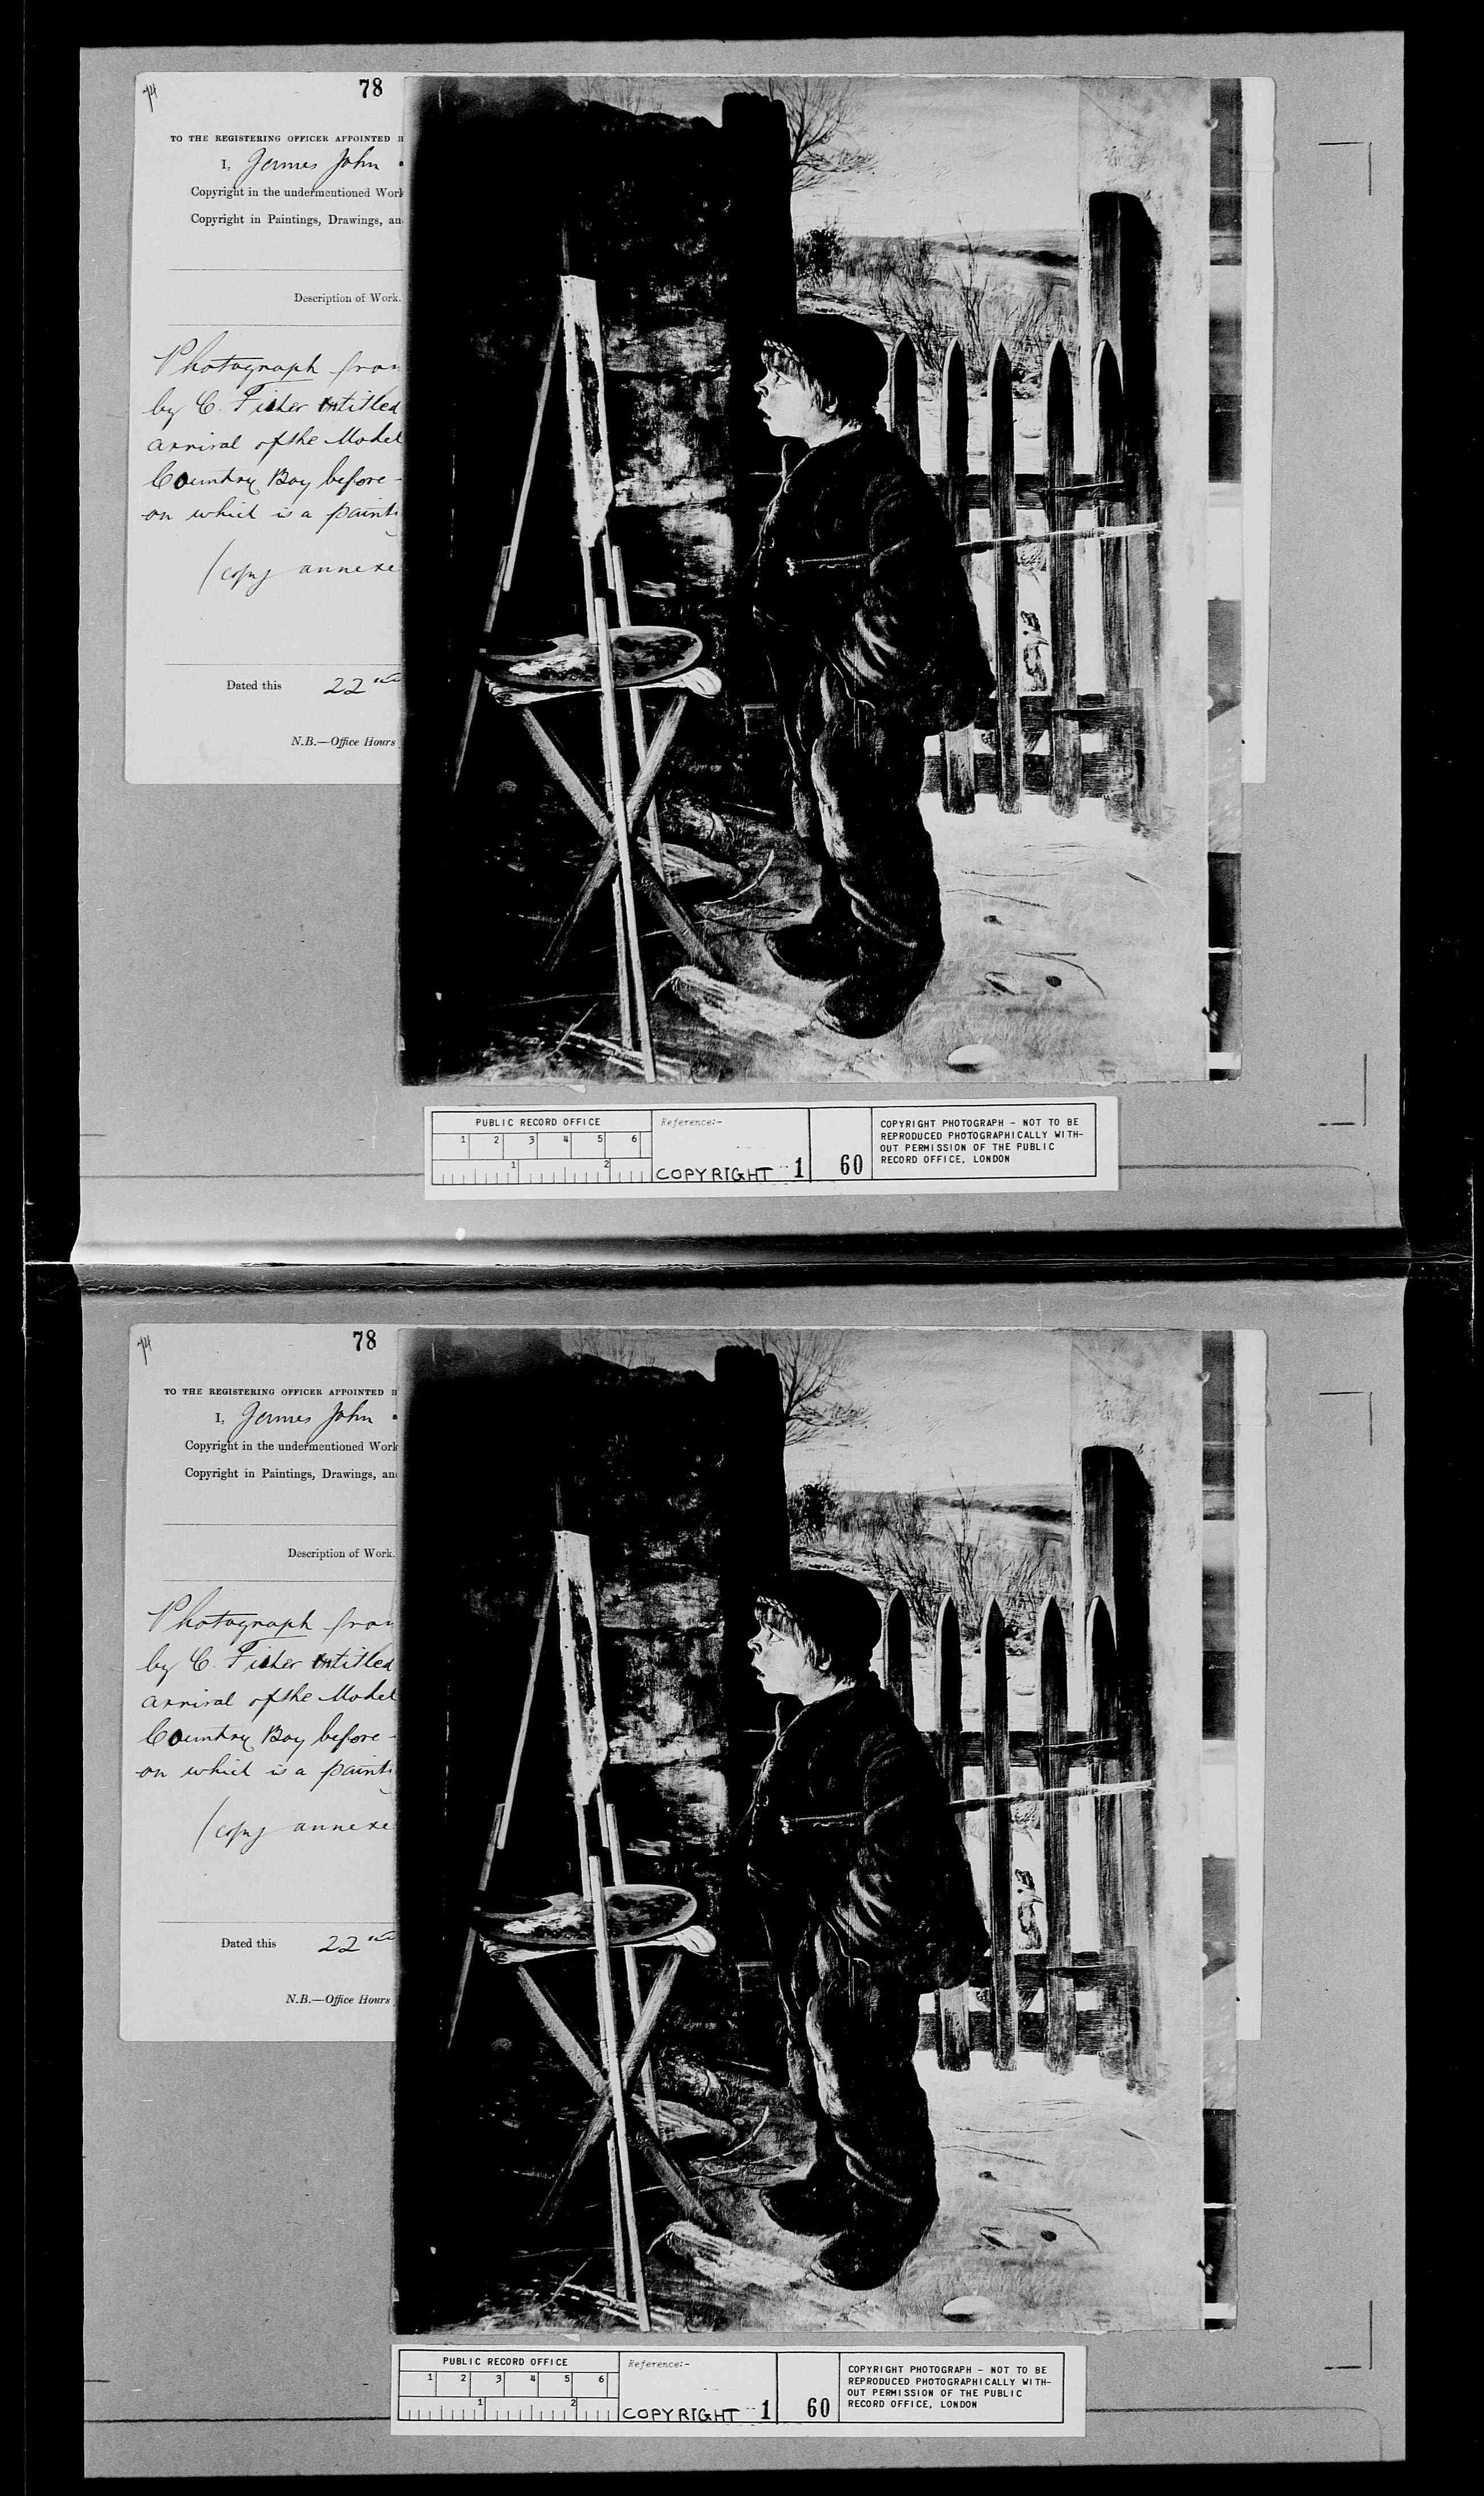 74
78
TO THE REGISTERING OFFICER APPOINTED B
I, James John
Copyright in the undermentioned Work
Copyright in Paintings, Drawings, an
Description of Work.
Photograph from
by C. Fisher entitled
arrival of the Model
Country Boy before
on which is a paint
(copy annexe
Dated this 22nd
N.B.—Office Hours
PUBLIC RECORD OFFICE
1 2 3 4 5 6
1 2
Reference:-
COPYRIGHT 1
60
COPYRIGHT PHOTOGRAPH - NOT TO BE
REPRODUCED PHOTOGRAPHICALLY WITH-
OUT PERMISSION OF THE PUBLIC
RECORD OFFICE, LONDON
74
78
TO THE REGISTERING OFFICER APPOINTED B
I, James John
Copyright in the undermentioned Work
Copyright in Paintings, Drawings, an
Description of Work.
Photograph from
by C. Fisher entitled
arrival of the Model
Country Boy before
on which is a paint
(copy annexe
Dated this 22nd
N.B.—Office Hours
PUBLIC RECORD OFFICE
1 2 3 4 5 6
1 2
Reference:-
COPYRIGHT 1
60
COPYRIGHT PHOTOGRAPH - NOT TO BE
REPRODUCED PHOTOGRAPHICALLY WITH-
OUT PERMISSION OF THE PUBLIC
RECORD OFFICE, LONDON